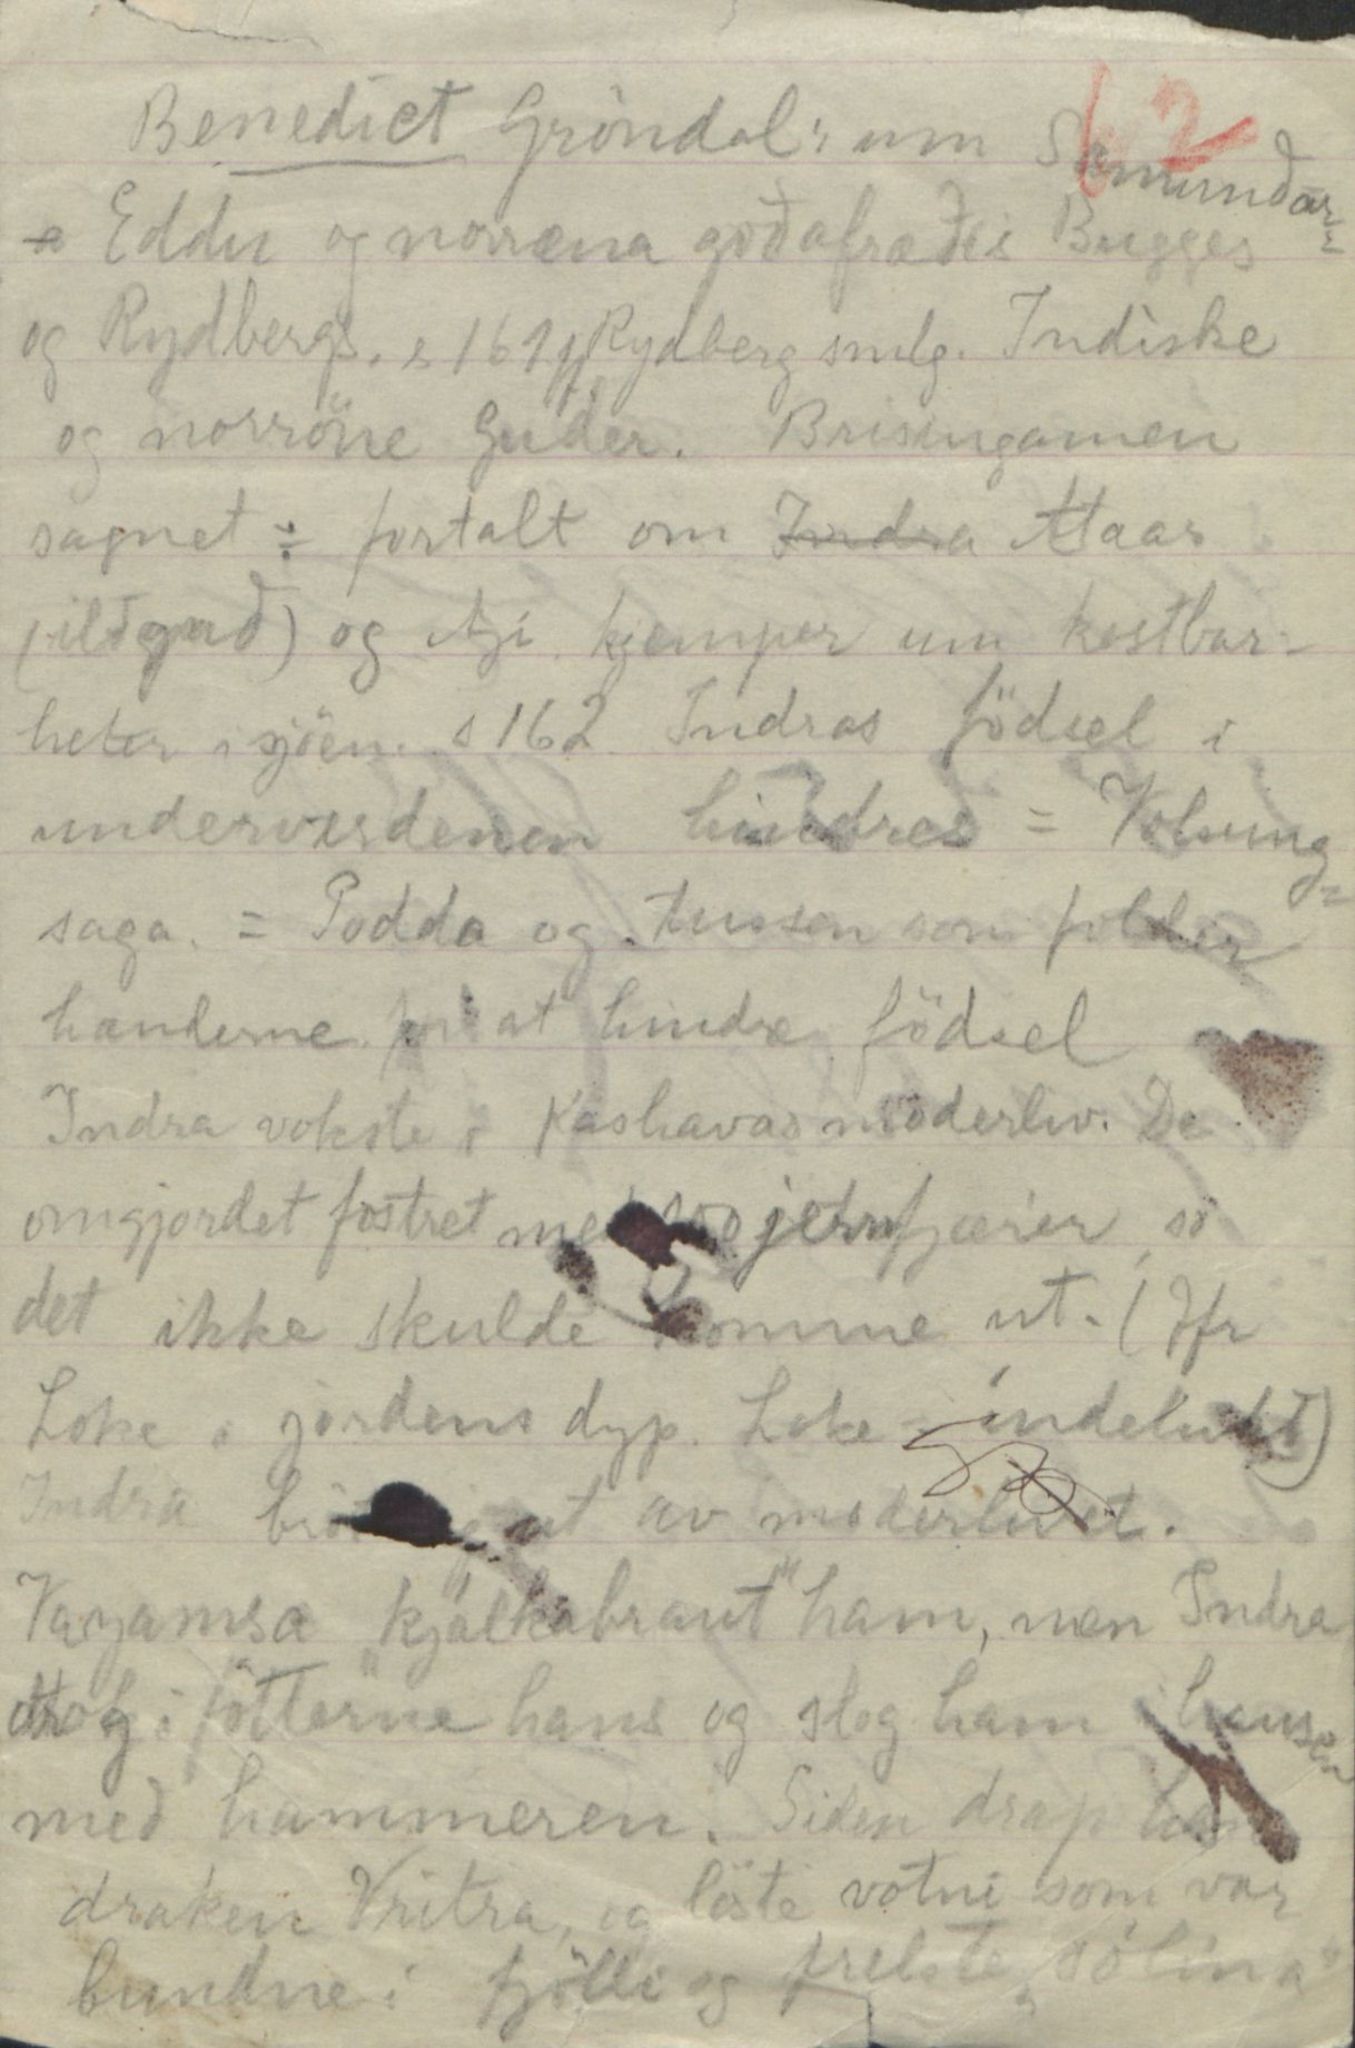 62
Benedict Gröndal: um Sæmundar-
Eddu og norræna goðafræði Bugges
og Rydbergs. s 161 ff Rydberg smlg. Indiske
og norröne Guder. Brisingamen
sagnet ÷ fortalt om Indra Ataar
(ildguð) og Aji kjemper um kostbar-
heter i sjöen. s 162 Indras födsel i
undervesdenen hindres = Volsung-
saga. = Podda og tussen som folder
hænderne for at hindre födsel
Indra vokste i Kashavas moderliv. De
omgjordet fostret med jernfjærer, så
det ikke skulde komme ut. (Jfr
Loke i jordens dyp. Loke = indelukt)
Indra bröt sig ut av moderlivet.
Vayamsa "kjálkabraut" ham, men Indra
tog i föttерne hans og slog ham i hausen
med hammeren. Siden drap han
draken Vritra, og löste votni som var
bundne i fjölli og frelste "sólina"